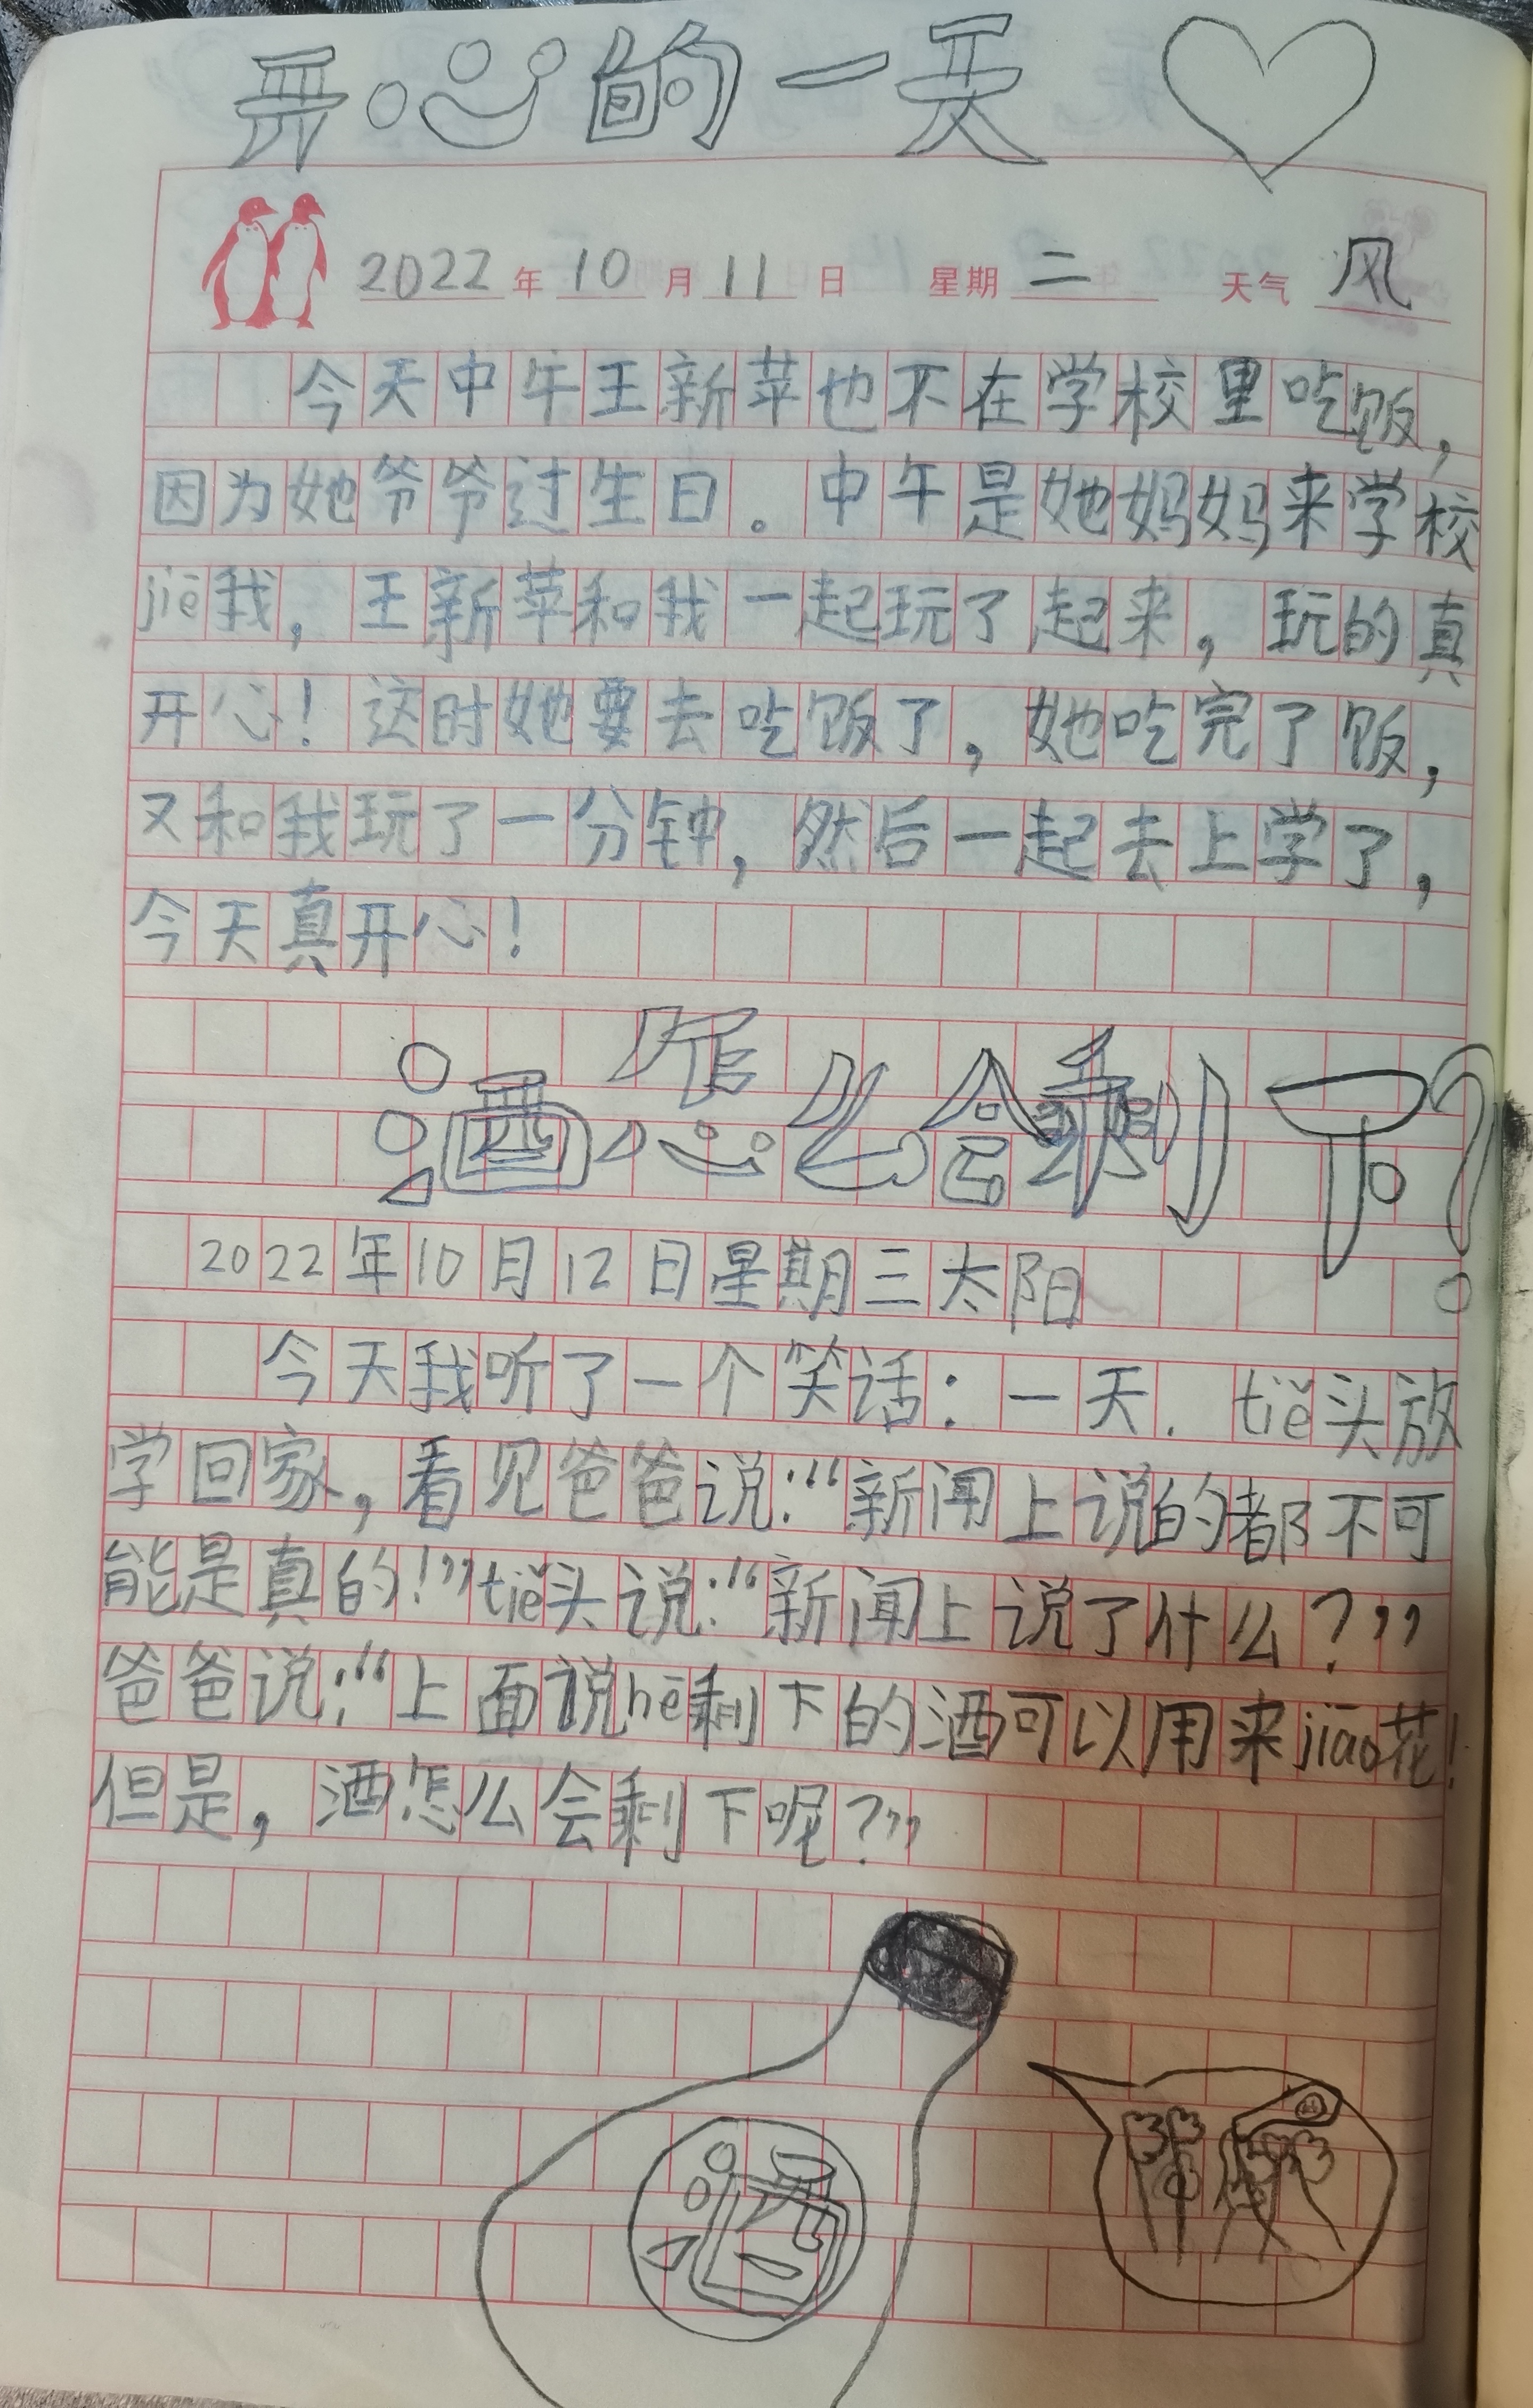 开心的一天
2022年10月11日 星期二 天气风
今天中午王新苹也不在学校里吃饭，
因为她爷爷过生日。中午是她妈妈来学校
jiē我，王新苹和我一起玩了起来，玩的真
开心！这时她要去吃饭了，她吃完了饭，
又和我玩了一分钟，然后一起去上学了，
今天真开心！
酒怎么会剩下？
2022年10月12日星期三太阳
今天我听了一个笑话：一天．tiě头放
学回家，看见爸爸说：“新闻上说的都不可
能是真的！”tiě头说：“新闻上说了什么？”
爸爸说：“上面说hē剩下的酒可以用来jiāo花！
但是，酒怎么会剩下呢？”
酒